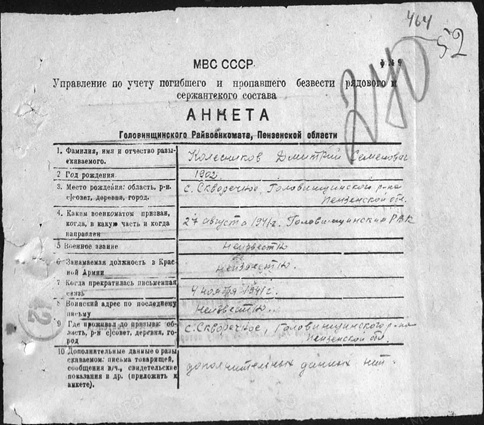 464
52
240
МВС СССР
Управление по учету погибшего и пропавшего безвести рядового и
сержантского состава
АНКЕТА
Головинщинского Райвоенкомата, Пензенской области
1. Фамилия, имя и отчество разы-
скиваемого.
Колесников Дмитрий Семенович
2 Год рождения
1902.
3. Место рождения: область, р-н
с/совет, деревня, город.
с. Скворечное, Головинщинского р-на
Пензенской обл.
4. Каким военкоматом призван,
когда, в какую часть и когда
направлен
27 августа 1941г. Головинщинский РВК
5 Военное звание
Неизвестно
6. Занимаемая должность в Крас
ной Армии
Неизвестно.
7. Когда прекратилась письменная
связь
1941г.
8 Воинский адрес по последнему
письму
Неизвестно.
9 Где проживал до призыва: об-
ласть, р-н с/совет, деревня, го-
род
с. Скворечное, Головинщинского р-на
Пензенской обл
10 Дополнительные данные о разы
скиваемом: письма товарищей,
сообщения в/ч., свидетельские
показания и др. (приложить к
анкете).
дополнительных данных нет.